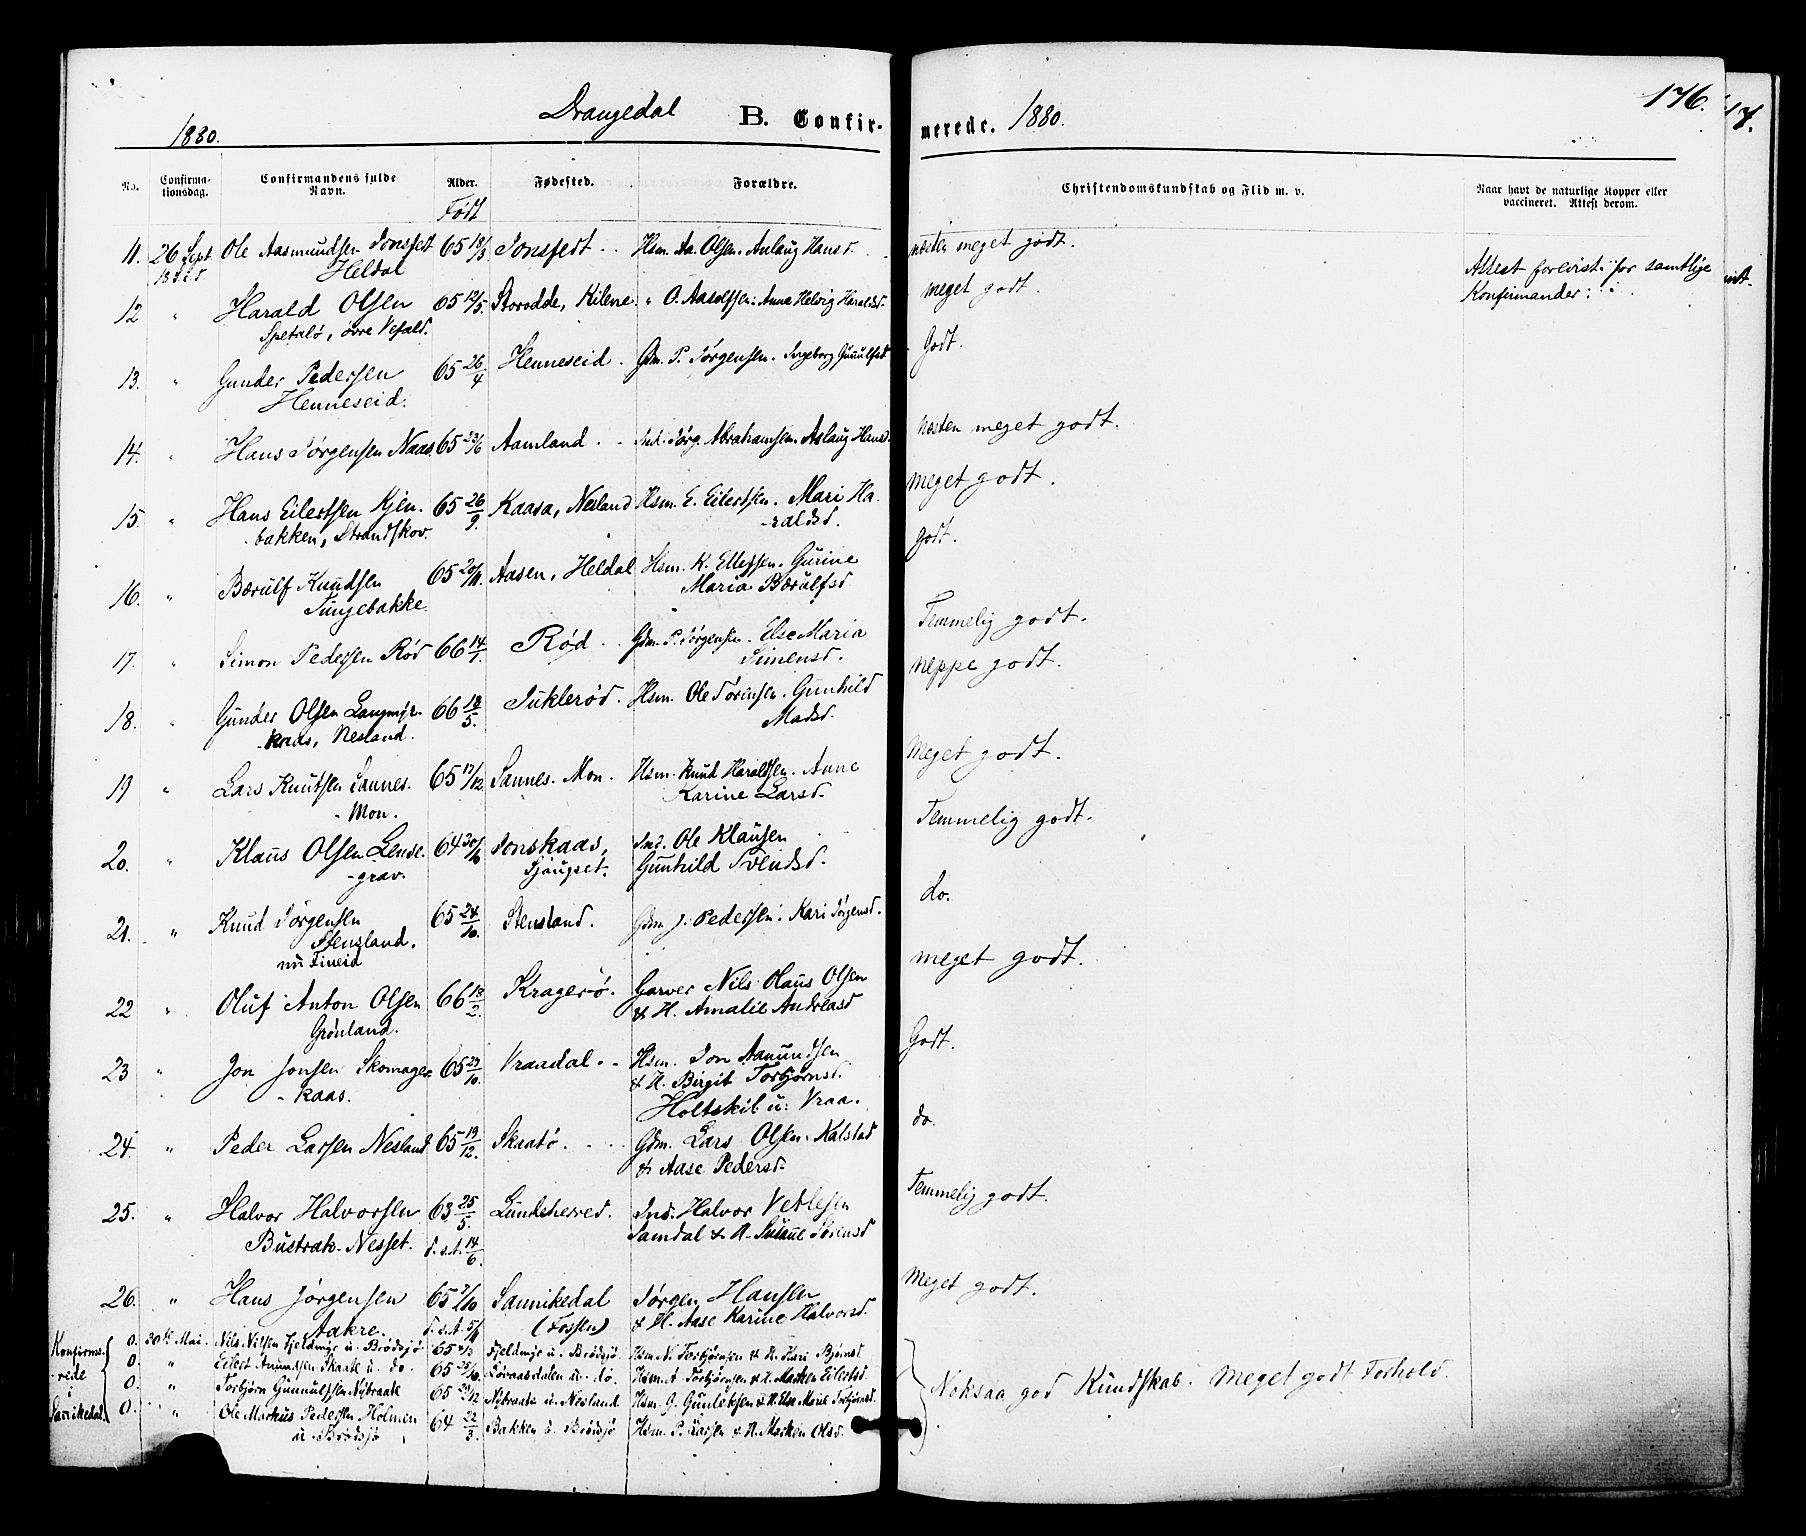 176.
17.
1880.
Drangedal B. Confir-
merede. 1880.
No. Confirma-tionsdag. Confirmandens fulde Navn. Alder. Fødested. Forældre. Christendomskundskab og Flid m. v. Naar havt de naturlige Kopper eller vaccineret. Attest derom.
Født
11. 26 Sept. Ole Aasmundsen Jonsfest 65 18/3 Jonsfest Hsm. Aa. Olsen. Aslaug Hansd. næsten meget godt.
Heldal
Attest forevist for samtlige
Konfirmander:
12 " Harald Olsen 65 12/5. Storodde, Kilene. " O. Aasolfsen. Anne Helvig Haraldsd. meget godt.
Spetalø, øvre Vefald.
13. " Gunder Pedersen 65 26/4 Henneseid. Gdm. P. Jørgensen. Ingeborg Gunulfsd Godt.
Henneseid.
14. " Hans Jørgensen Naas 65 23/6 Aamland. Ind. Jørg. Abrahamsen. Aslaug Hansd. næsten meget godt.
15. " Hans Eilertsen Kjen- 65 26/9. Kaasa, Nesland Hsm. E. Eilertsen. Mari Ha- meget godt.
bakken, Strandskov. -raldsd.
16. " Bærulf Knudsen 65 20/11. Aasen, Heldal Hsm. K. Ellefsen. Gurine godt.
Tungebakke. Maria Bærulfsd
17. " Simon Pedersen Rød 66 14/1. Rød. Gdm. P. Jørgensen. Else Maria Temmelig godt.
Simensd.
18. " Gunder Olsen Langmyr- 66 18/5. Juklerød. Hsm. Ole Sørensen. Gunhild neppe godt.
-kaas, Nesland. Madsd.
19 " Lars Knutsen Sannes- 65 17/12. Sannes. Mon. Hsm. Knud Haraldsen. Anne Meget godt.
-Mon. Karine Larsd.
20. " Klaus Olsen Lense- 64 30/6 Jonskaas, Ind. Ole Klausen Temmelig godt.
-grav. Sjaugset. Gunhild Svendsd.
21. " Knud Jørgensen 65 24/10. Stensland. Gdm J. Pedersen. Kari Jørgensd. do.
Stensland.
nu Fineid
22 " Oluf Anton Olsen 66 13/2. Kragerö. Garver Nils Olaus Olsen meget godt.
Grønland. & H. Amalie Andreasd
23 " Jon Jonsen Skomager- 65 27/10. Vraadal Hsm. Jon Aanundsen Godt.
-kaas. & H. Birgit Torbjørnsd.
Holtskil u: Vraa.
24. " Peder Larsen Nesland 65 19/12. Skaatö. Gdm. Lars Olsen. Kalstad do.
& Aase Pedersd.
25. " Halvor Halvorsen 63 25/5. Lundeherred. Ind. Halvor Vetlesen Temmelig godt.
Bustrak. Nesset. d. s. A. 14/6. Samdal & H. Susane Sørensd
26. " Hans Jørgensen 65 2/10 Sannikedal Jørgen Hansen Meget godt.
Aakre. d. s. A 5/11 (Fossen) & H. Aase Karine Halvorsd.
Konfirme-
-rede
i
Sannikedal
0. 30te Mai. Nils Nilsen Fjeldmyr u. Brødsjø 65 Fjeldmyr u. Brødsjø. Hsm. N. Torbjørnsen & H. Kari Bjørnsd.
0. " Eilert Anundsen Skaate u. do. 65 25/10. Løvaasdalen u. do. Hsm. A. Torbjørnsen & H. Marken Eilertsd.
0. " Torbjørn Gunnulfsen Nybraate 65 Nybraate u. Nesland. Hsm. G. Gunleksen & H. Else Marie Torbjørnsd.
0. " Ole Markus Pedersen Holmen 64 22/3. Bakken u. Brødsjø Hsm. P. Larsen & H. Marken Olsd.
u. Brødsjø
Noksaa god Kundskab. Meget godt Forhold.